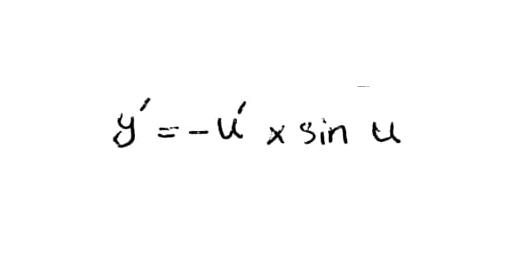 y′ = -u′ × sin u